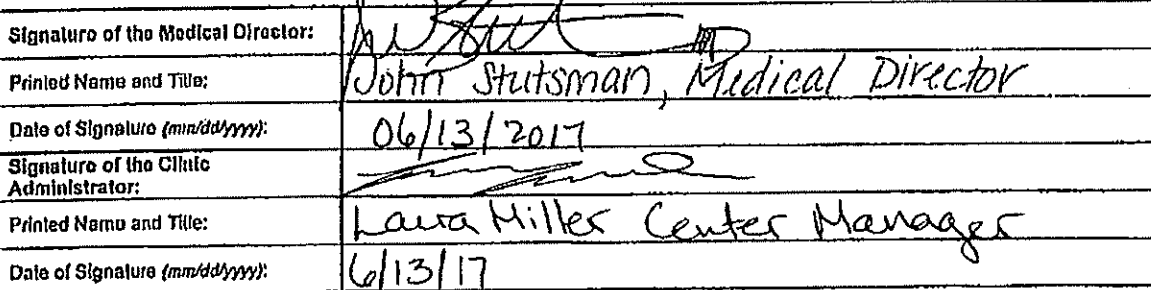 Signature of the Medical Director:
Printed Name and Title: John Stutsman, Medical Director
Date of Signature (mm/dd/yyyy): 06/13/2017
Signature of the Clinic
Administrator:
Printed Name and Title: Laura Miller Center Manager
Date of Signature (mm/dd/yyyy): 6/13/17